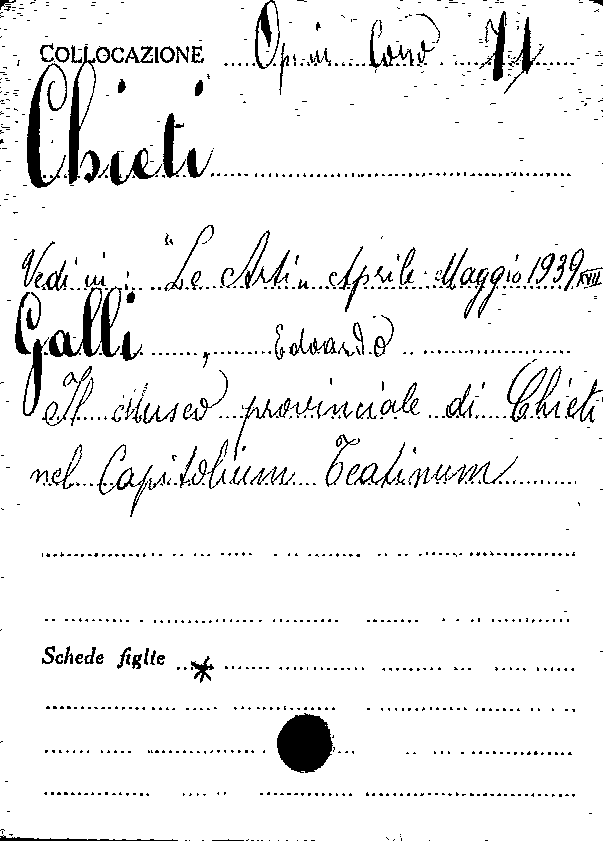 COLLOCAZIONE Op. in Cons 71
Chieti
Vedi in: "Le Arti„ Aprile-Maggio 1939 XVII
Galli, Edoardo
Il Museo provinciale di Chieti
nel Capitolium Teatinum
Schede figlie *